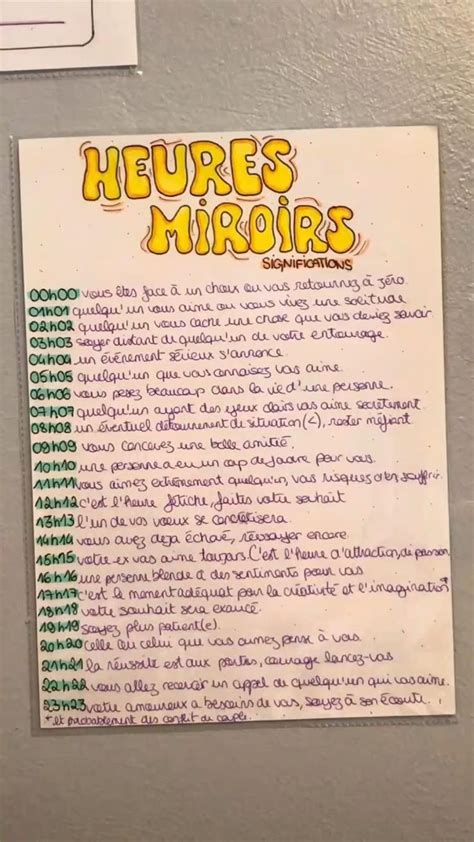 HEURES
MIROIRS
SIGNIFICATIONS
00h00 vous êtes face à un choix ou vas retournez à zéro.
01h01 quelqu'un vous aime ou vous vivez une solitude
02h02 quelqu'un vous cache une chose que vas devriez savoir
03h03 soyer distant de quelqu'un de votre entourage.
04h04 un événement sérieux s'annonce.
05h05 quelqu'un que vas connaisez vas aime.
06h06 vous pesez beaucoup dans la vie d'une personne.
07h07 quelqu'un ayant des yeux clairs vas aime secrètement
08h08 un éventuel détournement de situation(<), rester méfiant
09h09 vous concevez une belle amitié.
10h10 une personne a eu un coup de foudre pour vas.
11h11 vous aimez extrêmement quelqu'un, vas risquez d'en souffrir.
12h12 c'est l'heure fétiche, faites votre souhait
13h13 l'un de vos voeux se concrétisera.
14h14 vous avez déja échoué, réessayer encore
15h15 votre ex vas aime toujours (c'est l'heure d'attraction, de passion
16h16 une personne blonde a des sentiments pour vas
17h17 c'est le moment adéquat pour la créativité et l'imagination
18h18 votre souhait sera exaucé.
19h19 soyez plus patient(e).
20h20 celle ou celui que vas aimez pense à vas.
21h21 la réussite est aux portes, courage lancez-vas
22h22 vous allez recevoir un appel de quelqu'un qui vas aime.
23h23 votre amoureux a besoins de vas, soyez à son écoute.
*et probablement des conflit du couple.